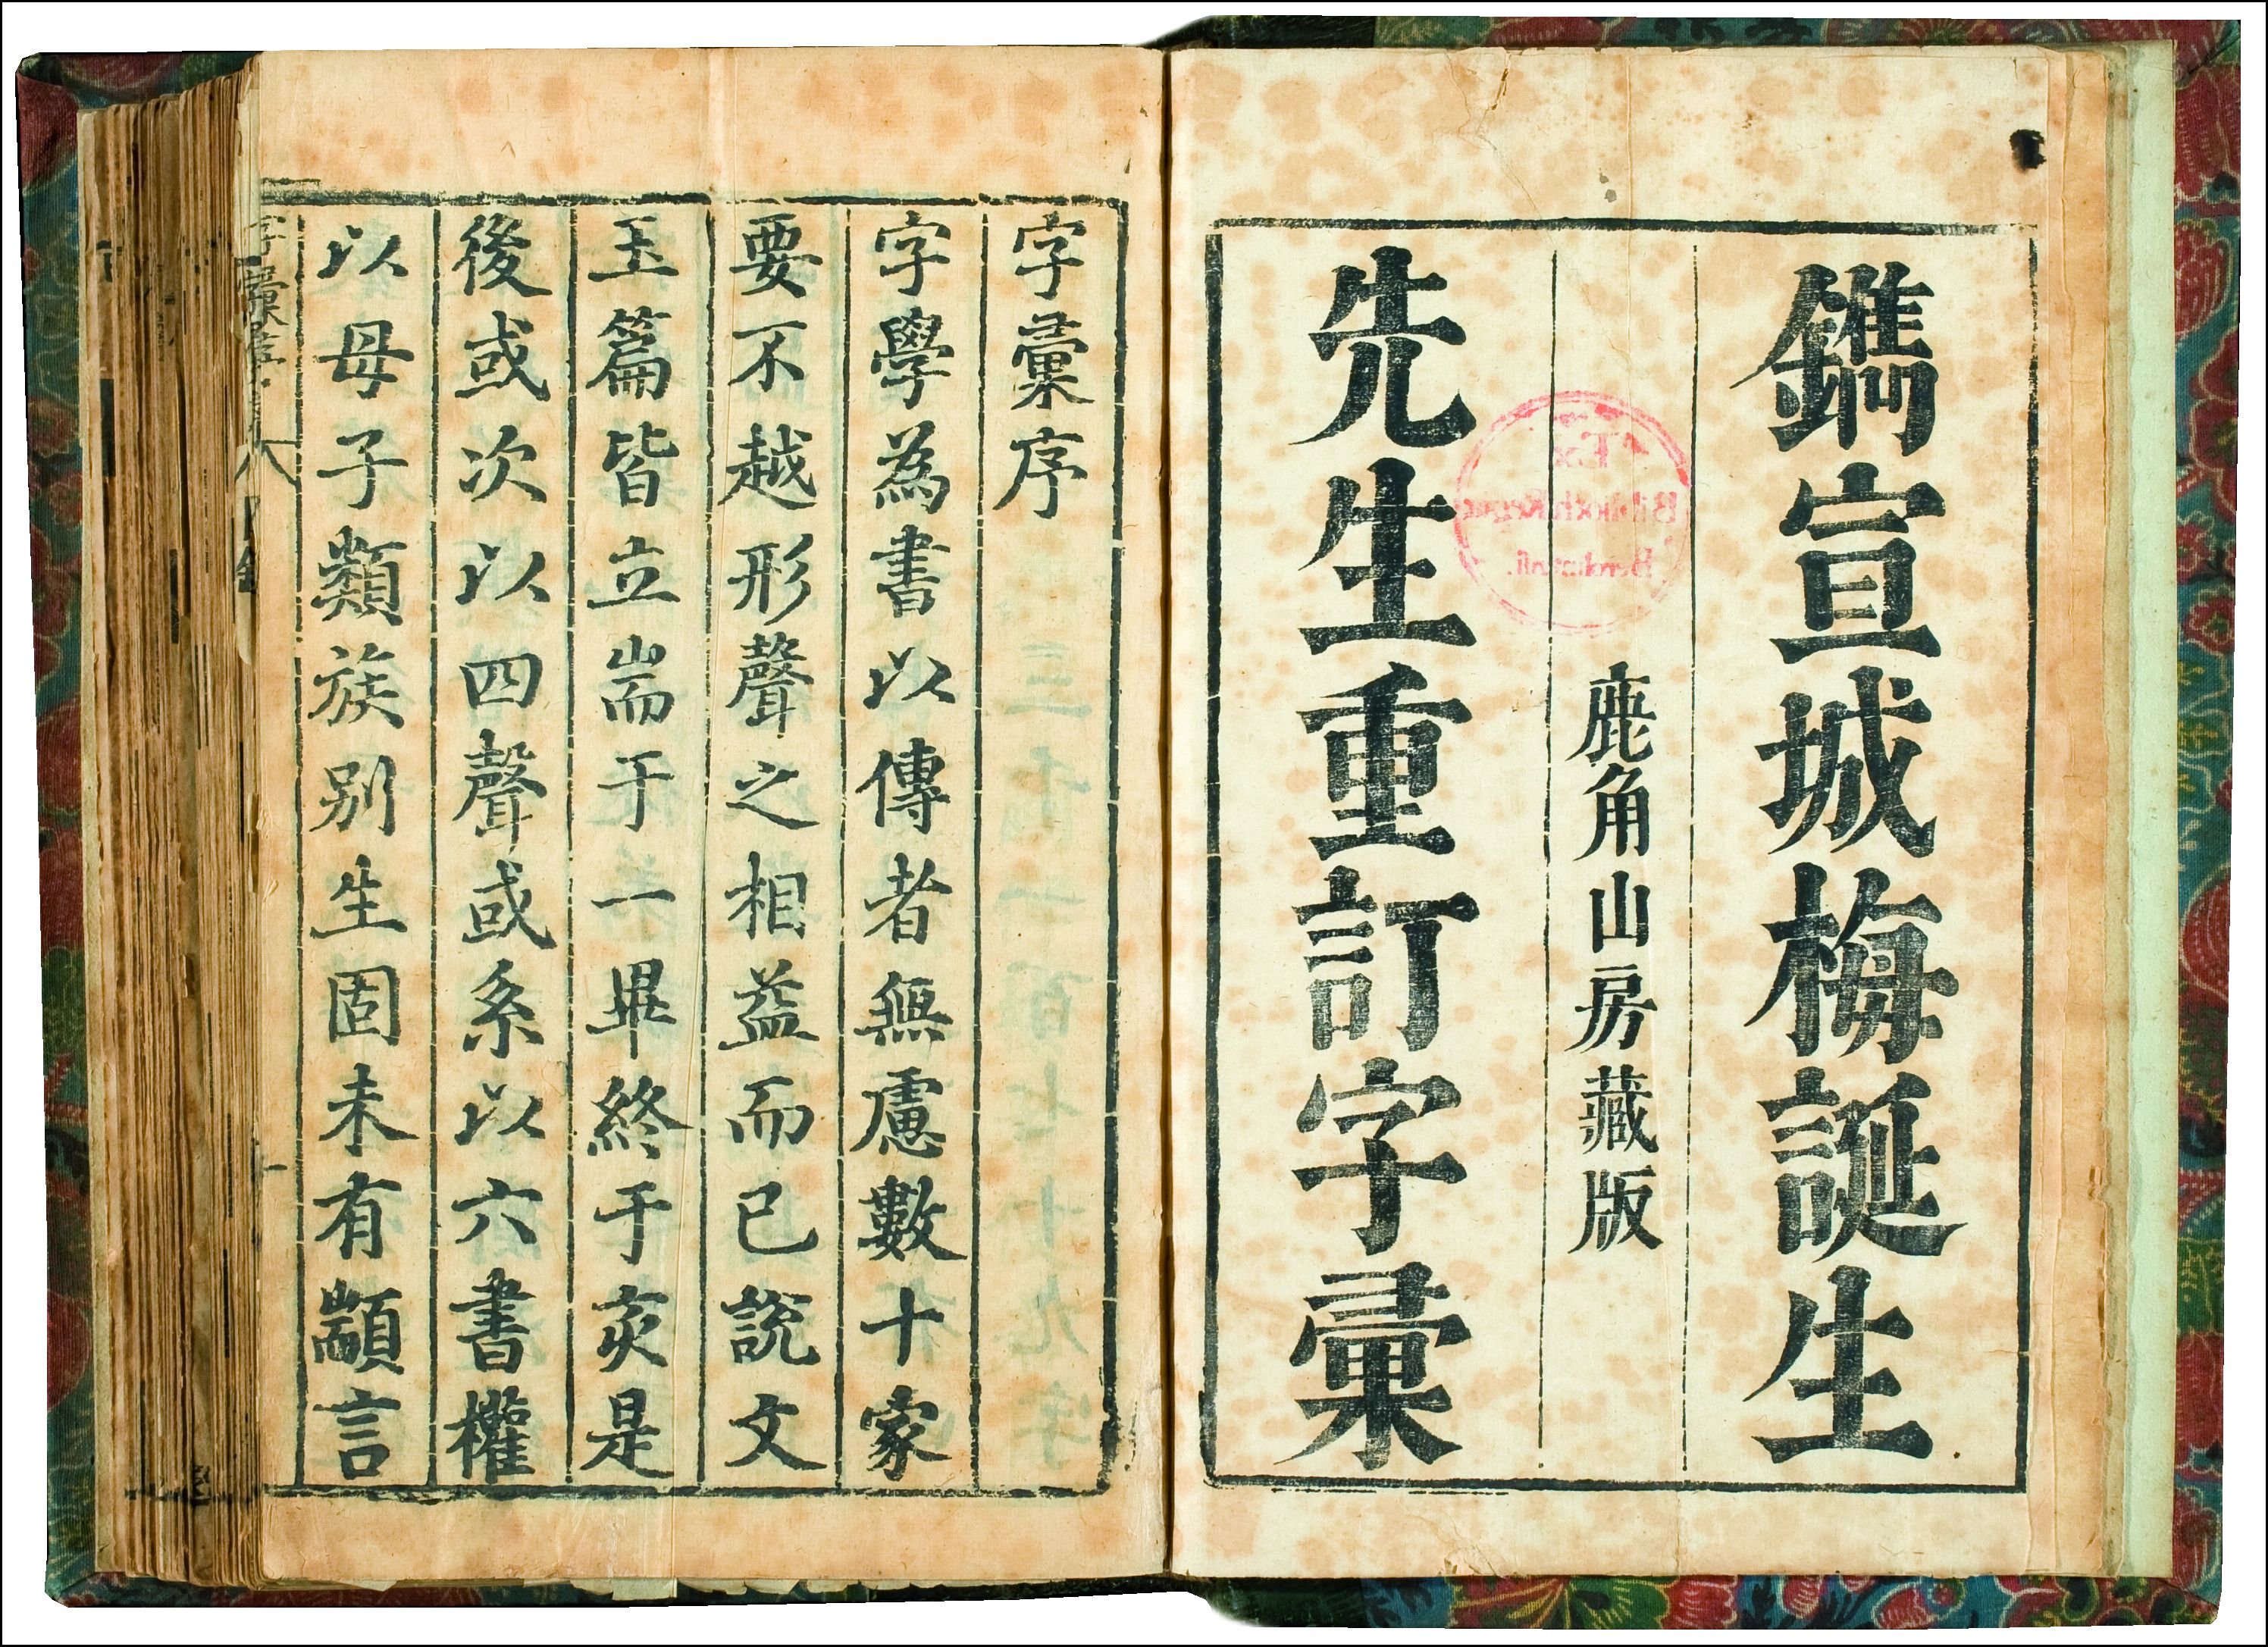 鐫宣城梅誕生
鹿角山房藏版
先生重訂字彙
字彙序
字學為書以傳者無慮數十家
要不越形聲之相益而已說文
玉篇皆立耑于一畢終于亥是
後或次以四聲或系以六書權
以母子類族別生固未有顓言
Ex
Biblioth. Regia
Berolinensi.